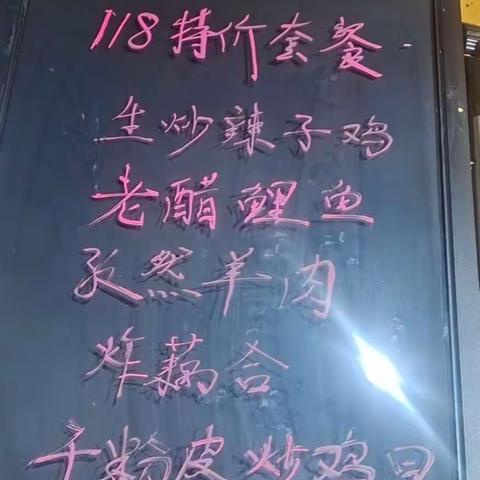 118特价套餐
生炒辣子鸡
老醋鲤鱼
孜然羊肉
炸藕合
干粉皮炒鸡